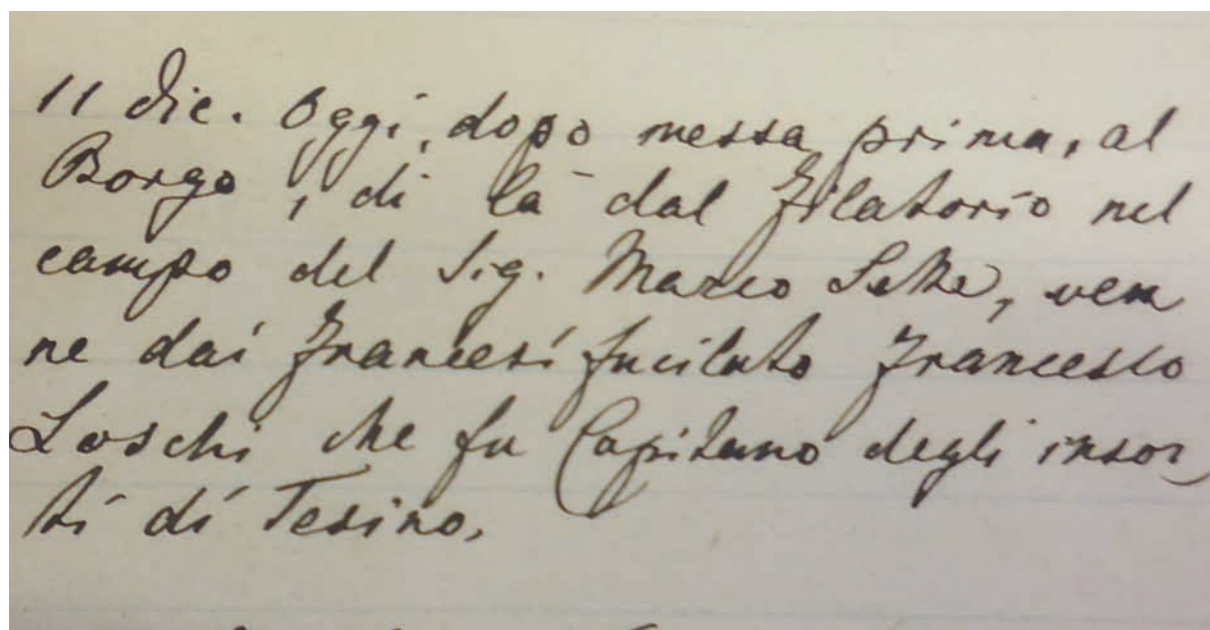 11 dic. Oggi, dopo messa prima, al
Borgo, di là dal Filatorio nel
campo del Sig. Marco Sette, ven
ne dai Francesi fucilato Francesco
Loschi che fu Capitano degli insor
ti di Tesino.